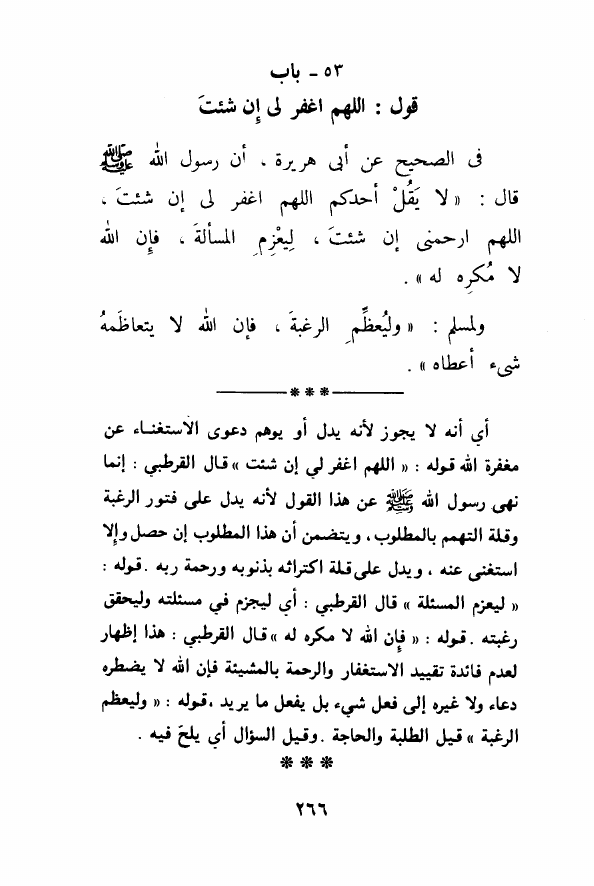 ٥٣ ـ باب
قول : اللهم اغفر لى إن شئتَ
فى الصحيح عن أبى هريرة ، أن رسول الله ﷺ
قال : « لا يَقُلْ أحدكم اللهم اغفر لى إن شئتَ ،
اللهم ارحمنى إن شئتَ ، لِيعْزِمِ المسألةَ ، فإِن الله
لا مُكرِه له » .
ولمسلم : « وليُعظِّمِ الرغبةَ ، فإن الله لا يتعاظَمهُ
شىء أعطاه » .
***
أي أنه لا يجوز لأنه يدل أو يوهم دعوى الاستغناء عن
مغفرة الله قوله : « اللهم اغفر لي إن شئت » قال القرطبي : إنما
نهى رسول الله ﷺ عن هذا القول لأنه يدل على فتور الرغبة
وقلة التهمم بالمطلوب ، ويتضمن أن هذا المطلوب إن حصل وإلا
استغنى عنه ، ويدل على قلة اكتراثه بذنوبه ورحمة ربه . قوله :
« ليعزم المسئلة » قال القرطبي : أي ليجزم في مسئلته وليحقق
رغبته . قوله : « فإن الله لا مكره له » قال القرطبي : هذا إظهار
لعدم فائدة تقييد الاستغفار والرحمة بالمشيئة فإن الله لا يضطره
دعاء ولا غيره إلى فعل شيء بل يفعل ما يريد ، قوله : « وليعظم
الرغبة » قيل الطلبة والحاجة . وقيل السؤال أي يلحَ فيه .
***
٢٦٦